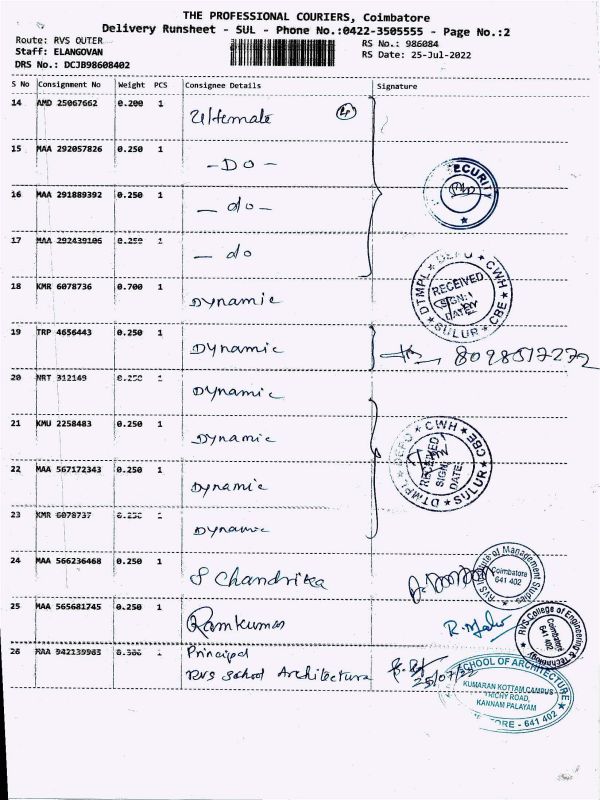 THE PROFESSIONAL COURIERS, Coimbatore
Delivery Runsheet - SUL - Phone No.:0422-3505555 - Page No.:2
Route: RVS OUTER
RS No.: 986084
Staff: ELANGOVAN
RS Date: 25-Jul-2022
DRS No.: DCJB98608402
S No Consignment No Weight PCS Consignee Details Signature
14 AMD 25067662 0.200 1 Ultemate
15 MAA 292057826 0.250 1 -DO-
16 MAA 291889392 0.250 1 -do-
17 MAA 292439106 0.250 1 -do
18 KMR 6078736 0.700 1 Dynamic
19 TRP 4656443 0.250 1 Dynamic
20 NRT 312149 0.250 1 Dynamic
21 KMU 2258483 0.250 1 Dynamic
22 MAA 567172343 0.250 1 Dynamic
23 KMR 6078737 0.250 1 Dynamic
24 MAA 566236468 0.250 1 S Chandrika
25 MAA 565681745 0.250 1 Ramkumar
26 MAA 942139963 0.300 1 Principal
RVS School Architectura 25/07/22
SECURITY
DTMPL ★ DEPO ★ CWH ★ CBE ★ SULUR ★
RECEIVED
SIGN:
DATE:
DTMPL ★ DEPO ★ CWH ★ CBE ★ SULUR ★
RECEIVED
SIGN:
DATE:
RVS Institute of Management Studies
Coimbatore
641 402
RVS College of Engineering & Technology
Coimbatore
641 402
SCHOOL OF ARCHITECTURE
KUMARAN KOTTAM CAMPUS
TRICHY ROAD,
KANNAM PALAYAM
641 402